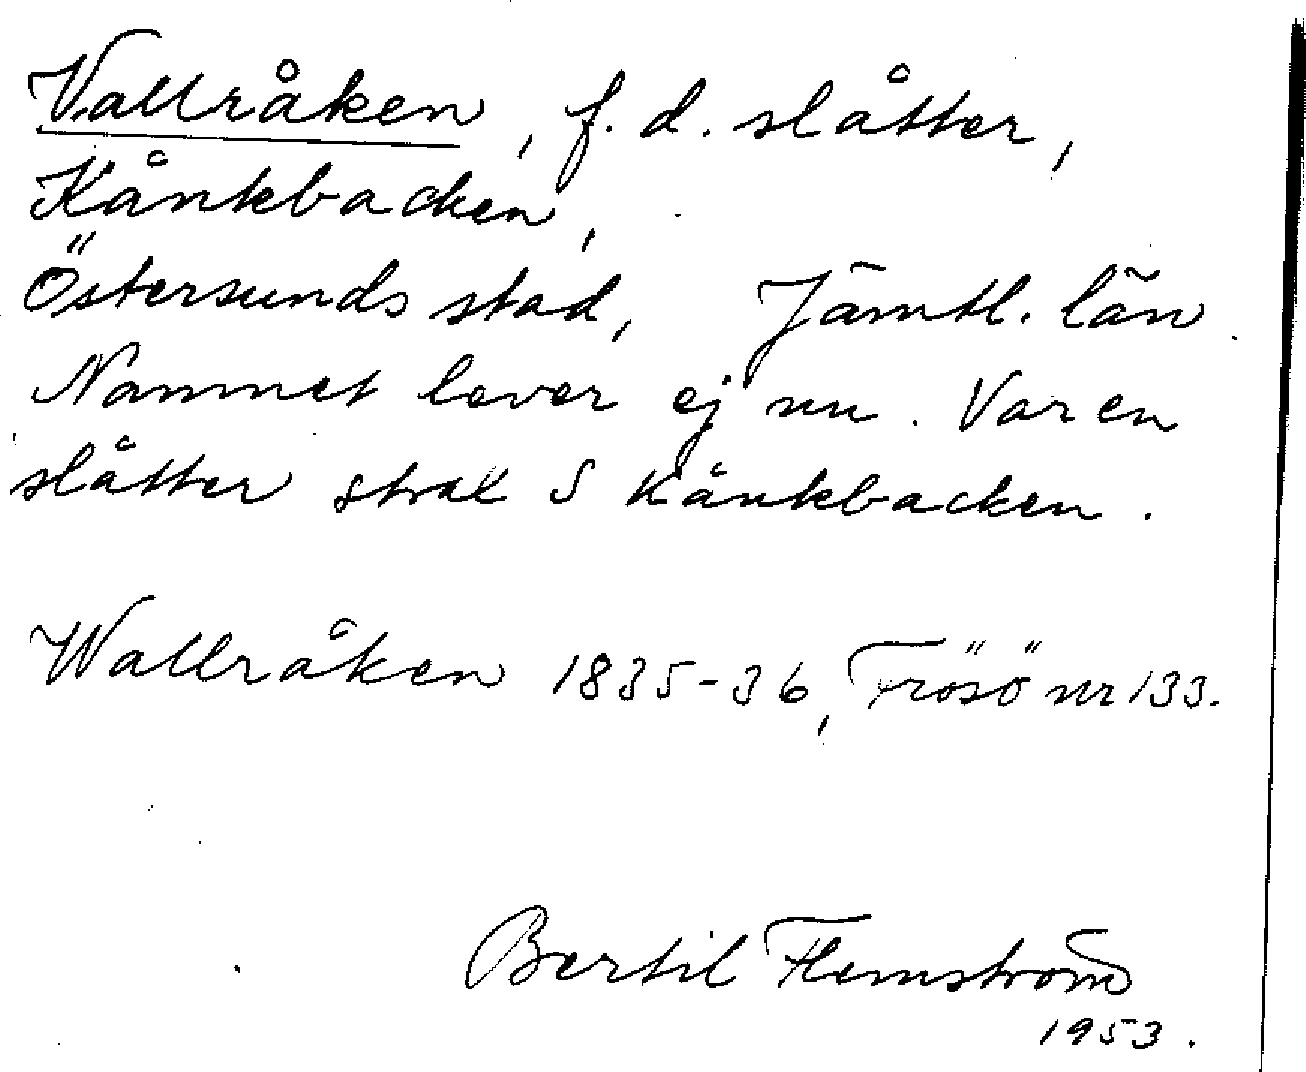 Vallråken, f. d. slåtter,
Kånkbacken,
Östersunds stad, Jämtl. län
Namnet lever ej nu. Var en
slåtter strax S Kånkbacken.
Wallråken 1835-36, Frösö nr 133.
Bertil Flemström
1953.